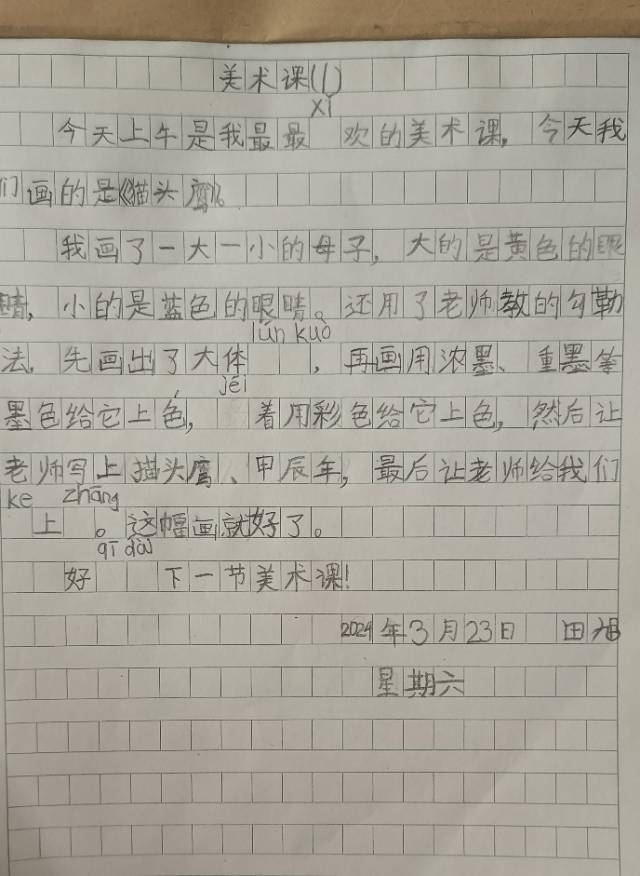 美术课(1)
xǐ
今天上午是我最最 欢的美术课，今天我
们画的是《猫头鹰》。
我画了一大一小的母子，大的是黄色的眼
睛，小的是蓝色的眼睛。还用了老师教的勾勒
lún kuò
法，先画出了大体 ，再画用浓墨、重墨等
jēi
墨色给它上色， 着用彩色给它上色，然后让
老师写上猫头鹰、甲辰年，最后让老师给我们
ke zhāng
上 。这幅画就好了。
qī dài
好 下一节美术课！
2024年3月23日 田旭
星期六